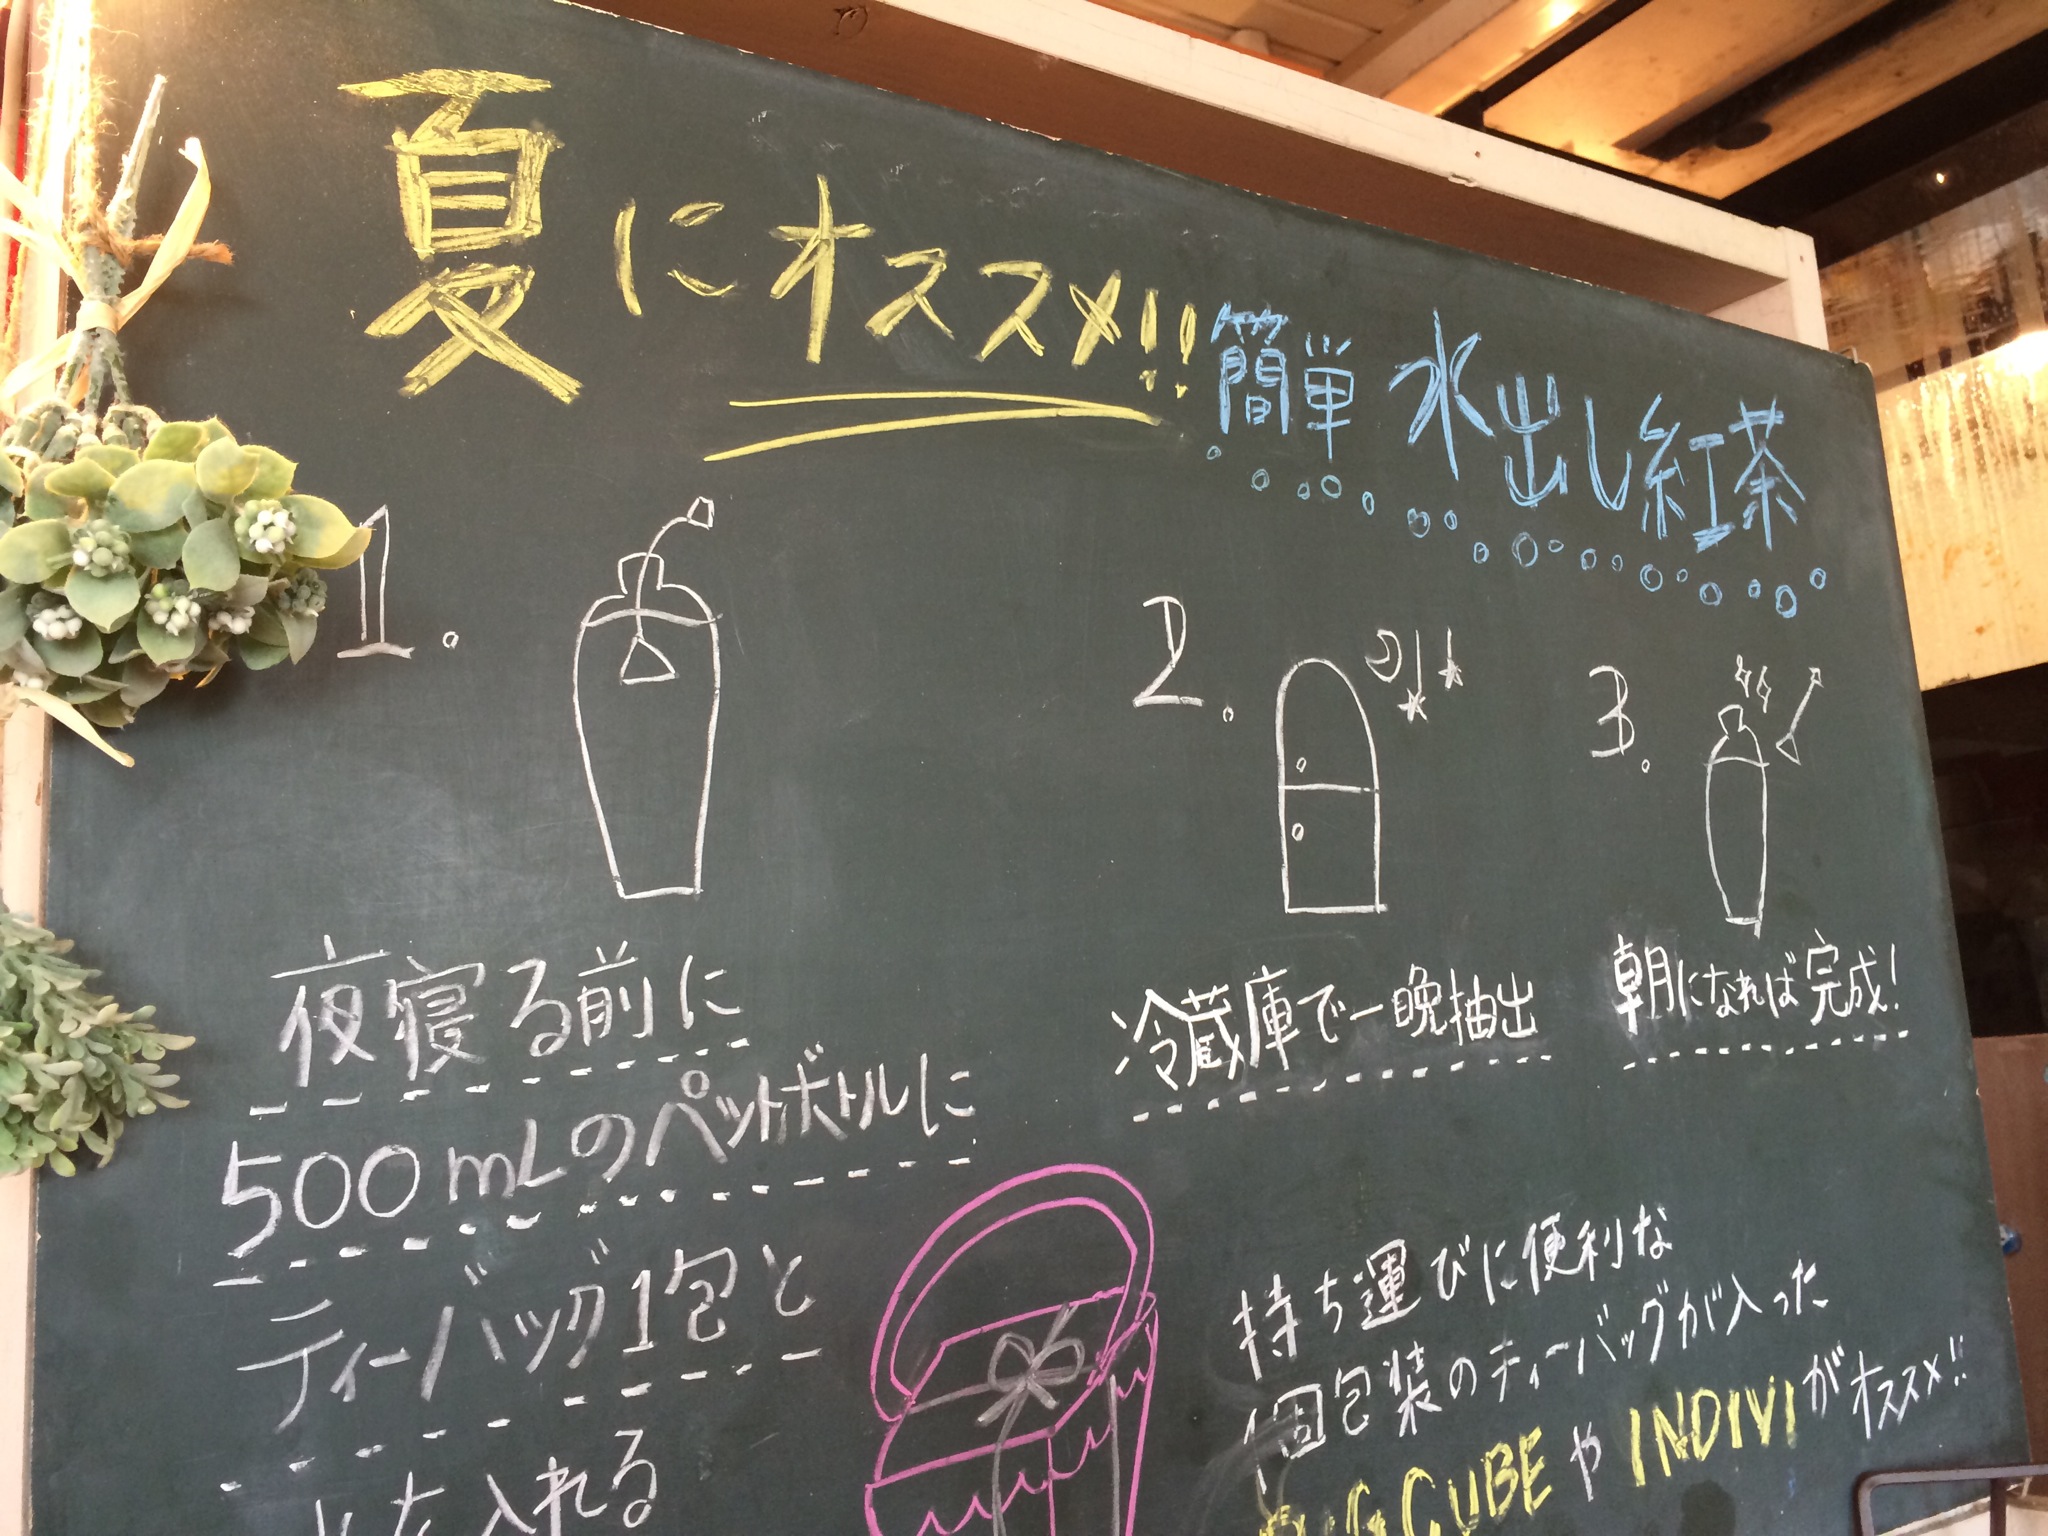 夏にオススメ!!
簡単 水出し紅茶
1.
夜寝る前に
500mLのペットボトルに
ティーバッグ1包と
水を入れる
2.
冷蔵庫で一晩抽出
3.
朝になれば完成!
持ち運びに便利な
個包装のティーバッグが入った
CUBEや INDIVIがオススメ!!